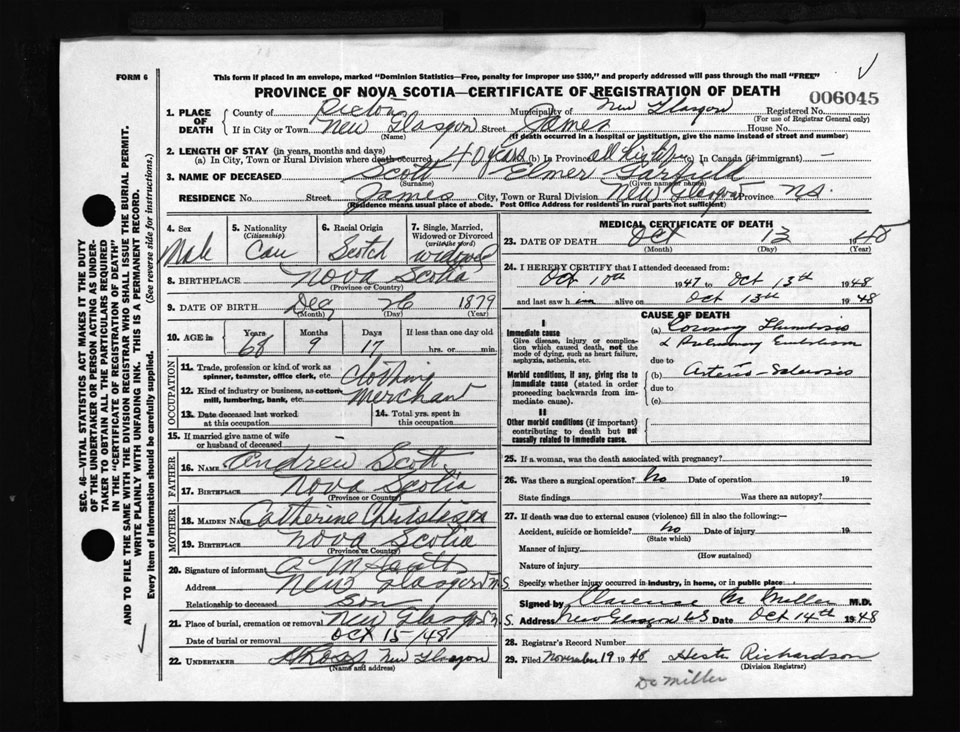 FORM 6
This form if placed in an envelope, marked "Dominion Statistics—Free, penalty for improper use $300," and properly addressed will pass through the mail "FREE"
PROVINCE OF NOVA SCOTIA—CERTIFICATE OF REGISTRATION OF DEATH
006045
1. PLACE OF DEATH { County of Pictou Municipality of New Glasgow Registered No.
(For use of Registrar General only)
If in City or Town New Glasgow Street James House No.
(Name) (If death occurred in a hospital or institution, give the name instead of street and number)
2. LENGTH OF STAY (in years, months and days)
(a) In City, Town or Rural Division where death occurred 40 years (b) In Province all his life (c) In Canada (if immigrant) —
3. NAME OF DECEASED Scott Elmer Garfield
(Surname) (Given name or names)
RESIDENCE No. Street James City, Town or Rural Division New Glasgow Province N.S.
(Residence means usual place of abode. Post Office Address for residents in rural parts not sufficient)
4. Sex Male
5. Nationality (Citizenship) Can
6. Racial Origin Scotch
7. Single, Married, Widowed or Divorced (write the word) widowed
8. BIRTHPLACE Nova Scotia
(Province or Country)
9. DATE OF BIRTH Dec 26 1879
(Month) (Day) (Year)
10. AGE in { Years Months Days If less than one day old
68 9 17 hrs. or min.
OCCUPATION
11. Trade, profession or kind of work as spinner, teamster, office clerk, etc. Clothing
12. Kind of industry or business, as cotton mill, lumbering, bank, etc. Merchant
13. Date deceased last worked at this occupation
14. Total yrs. spent in this occupation
15. If married give name of wife or husband of deceased —
FATHER
16. NAME Andrew Scott
17. BIRTHPLACE Nova Scotia
(Province or Country)
MOTHER
18. MAIDEN NAME Catherine Christieson
19. BIRTHPLACE Nova Scotia
(Province or Country)
20. Signature of informant A M Scott
Address New Glasgow N.S
Relationship to deceased son
21. Place of burial, cremation or removal New Glasgow N.S.
Date of burial or removal Oct 15-48
22. UNDERTAKER New Glasgow
(Name and address)
MEDICAL CERTIFICATE OF DEATH
23. DATE OF DEATH Oct 13 1948
(Month) (Day) (Year)
24. I HEREBY CERTIFY that I attended deceased from:
Oct 10th 1947 to Oct 13th 1948
and last saw him alive on Oct 13th 1948
CAUSE OF DEATH
I
Immediate cause
Give disease, injury or complication which caused death, not the mode of dying, such as heart failure, asphyxia, asthenia, etc.
(a) Coronary Thrombosis
& Pulmonary Embolism
due to
Morbid conditions, if any, giving rise to immediate cause (stated in order proceeding backwards from immediate cause).
(b) Arterio-Sclerosis
due to
(c)
II
Other morbid conditions (if important) contributing to death but not causally related to immediate cause.
25. If a woman, was the death associated with pregnancy?
26. Was there a surgical operation? No Date of operation 19
State findings Was there an autopsy?
27. If death was due to external causes (violence) fill in also the following:—
Accident, suicide or homicide? No Date of injury 19
(State which)
Manner of injury
(How sustained)
Nature of injury
Specify whether injury occurred in industry, in home, or in public place
Signed by Clarence M Miller M.D.
Address New Glasgow NS Date Oct 14th 1948
28. Registrar's Record Number
29. Filed November 19 1948 Hester Richardson
(Division Registrar)
Dc Miller
SEC. 46—VITAL STATISTICS ACT MAKES IT THE DUTY
OF THE UNDERTAKER OR PERSON ACTING AS UNDERTAKER TO OBTAIN ALL THE PARTICULARS REQUIRED
IN THE "CERTIFICATE OF REGISTRATION OF DEATH"
AND TO FILE THE SAME WITH THE DIVISION REGISTRAR WHO SHALL ISSUE THE BURIAL PERMIT.
WRITE PLAINLY WITH UNFADING INK. THIS IS A PERMANENT RECORD.
Every item of information should be carefully supplied. (See reverse side for instructions.)